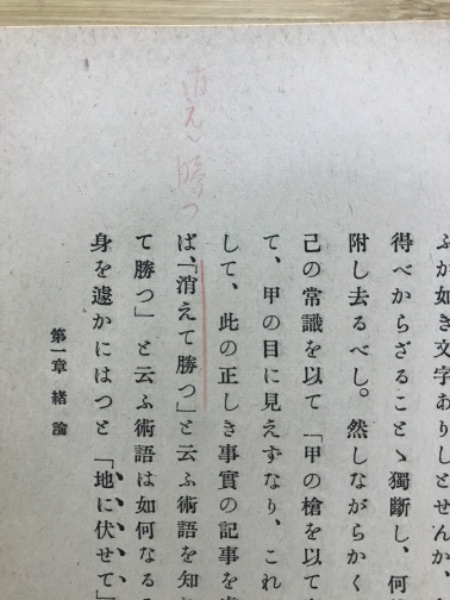 ふが如き文字ありしとせんか、
得べからざることゝ獨斷し、何
附し去るべし。然しながらかく
己の常識を以て「甲の槍を以て
て、甲の目に見えずなり、これ
して、此の正しき事實の記事を
ば、「消えて勝つ」と云ふ術語を知
て勝つ」と云ふ術語は如何なる
身を遽かにはつと「地に伏せて」
第一章 緒論
消え勝つ